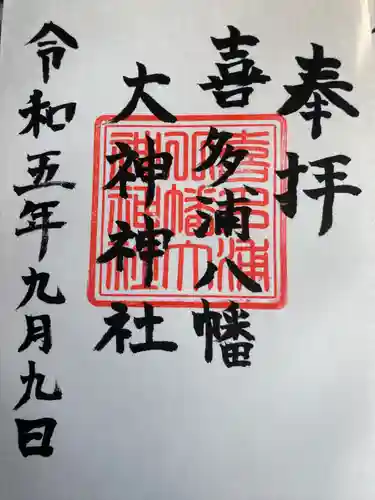 奉拝
喜多浦八幡
大神神社
令和五年九月九日